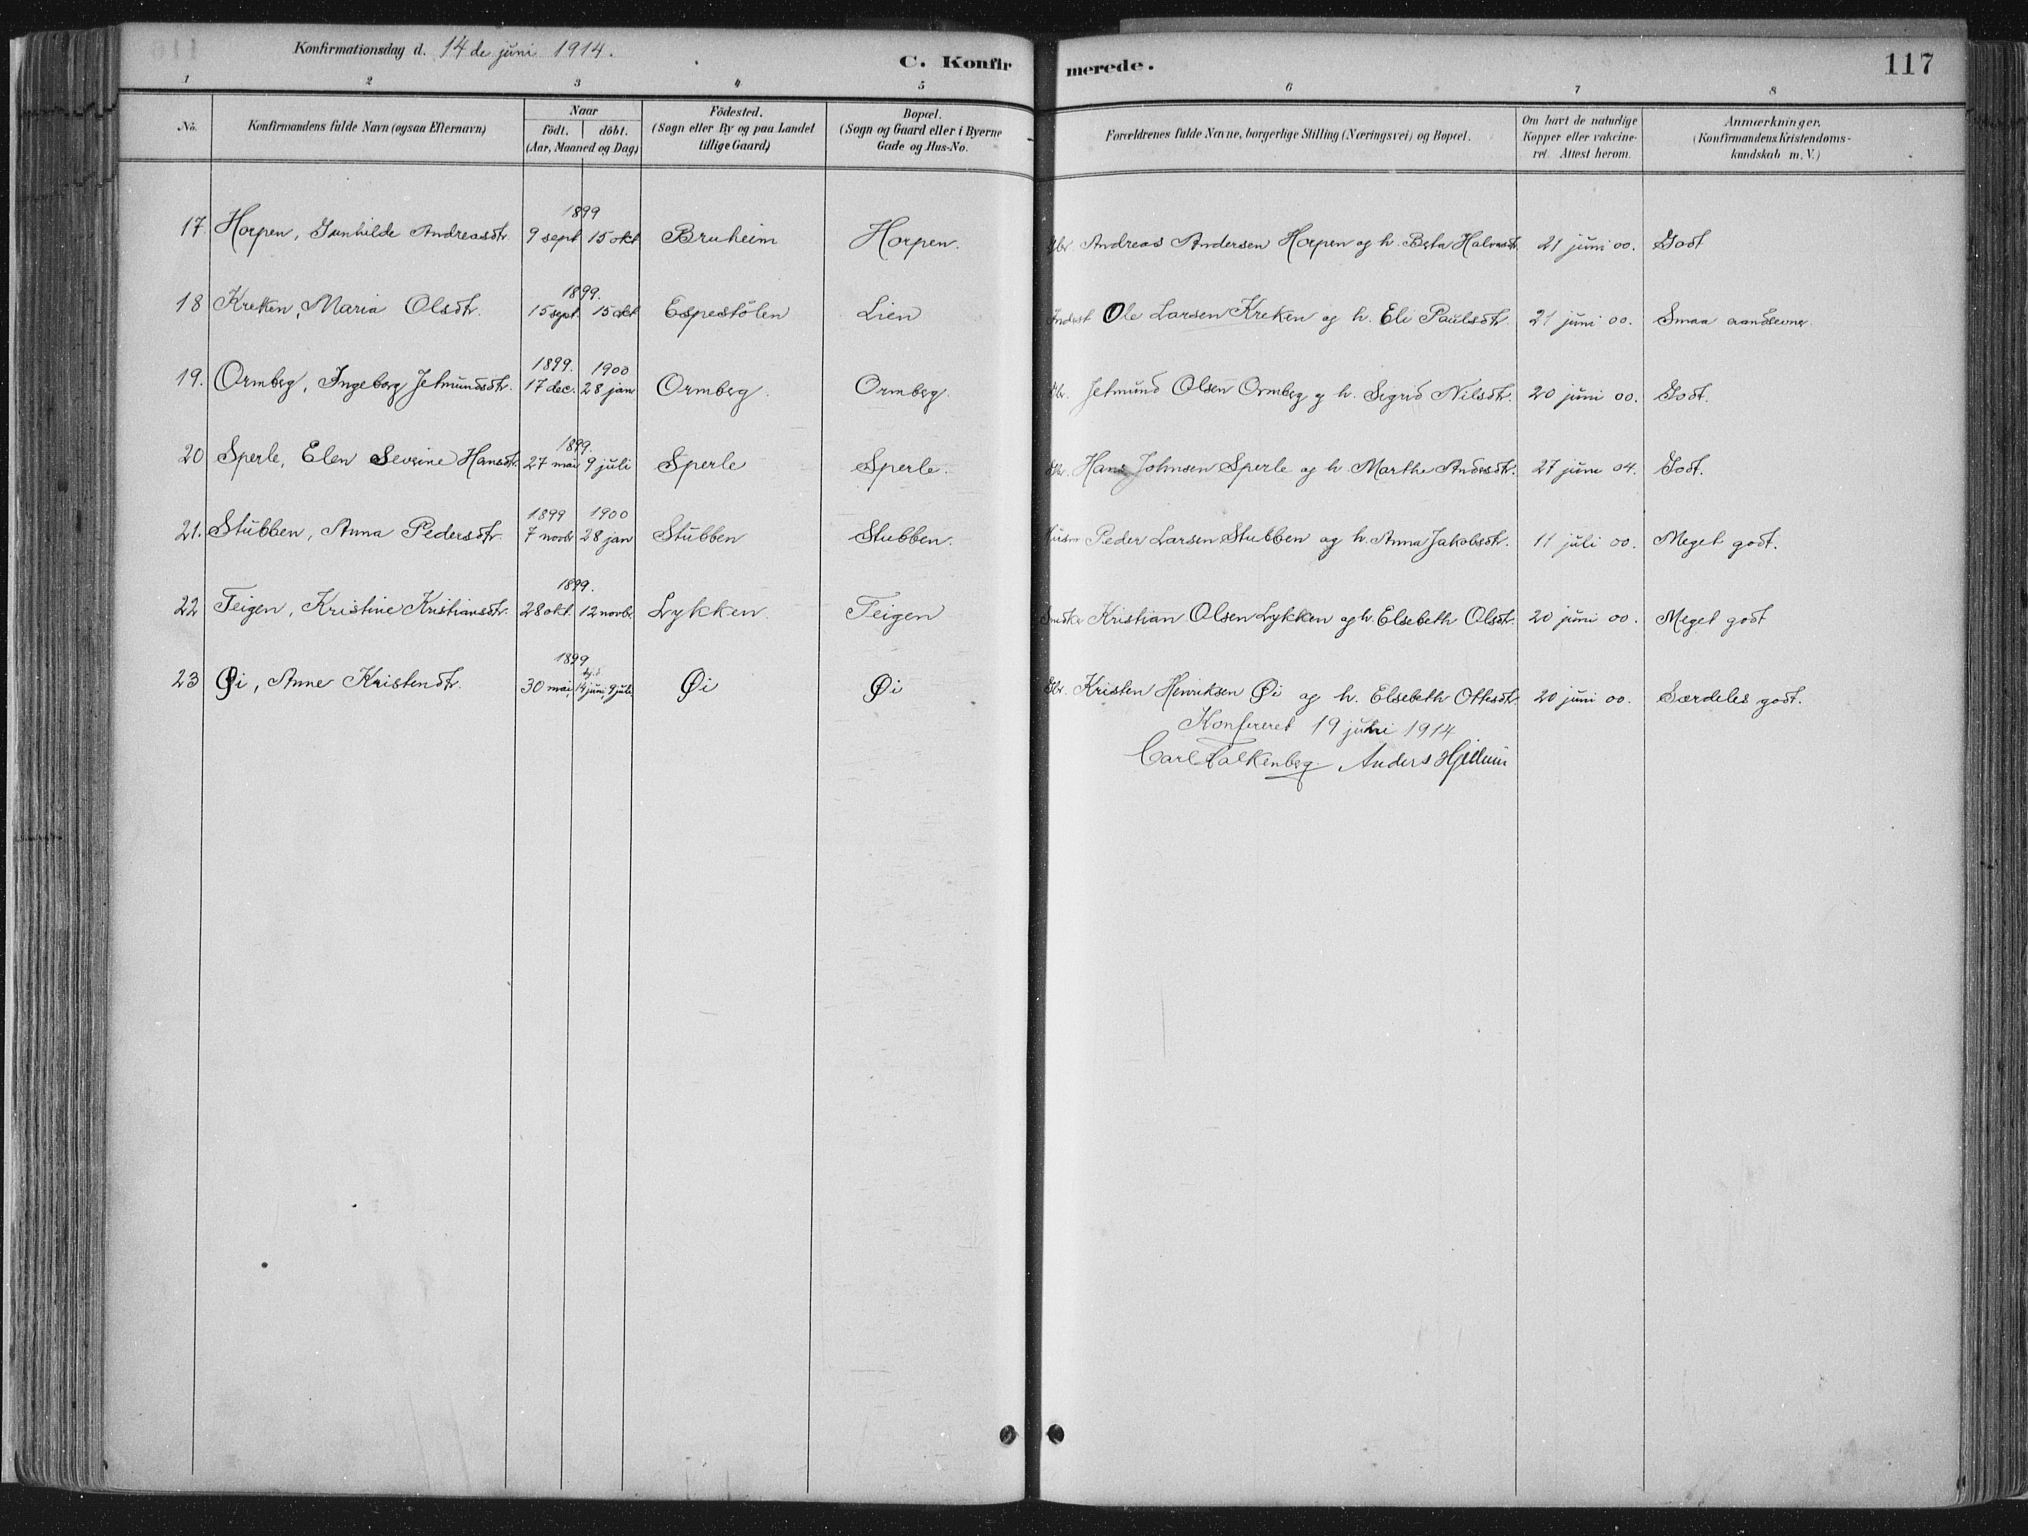 Konfirmationsdag d. 14 de juni 1914.
C. Konfirmerede.
117
1 2 3 4 5 6 7 8
No.
Konfirmandens fulde Navn (ogsaa Efternavn)
Naar
födt. döbt.
(Aar, Maaned og Dag)
Födested.
(Sogn eller By og paa Landet
tillige Gaard)
Bopæl.
(Sogn og Gaard eller i Byerne
Gade og Hus-No.
Forældrenes fulde Navne, borgerlige Stilling (Næringsvei) og Bopæl.
Om havt de naturlige
Kopper eller vakcine-
ret. Attest herom.
Anmærkninger.
(Konfirmandens Kristendoms-
kundskab m. V.)
1899
17. Horpen, Gunhilde Andreasdtr. 9 sept 15 okt Bruheim Horpen. Gbr. Andreas Andersen Horpen og h. Berta Halvorsdtr. 21 juni 00. Godt
1899.
18 Kreken, Maria Olsdtr. 15 sept 15 okt Espestölen Lien Inderst Ole Larsen Kreken og h. Eli Paulsdtr. 21 juni 00. Smaa aandsevner.
1899. 1900
19. Ormberg, Ingeborg Jetmundsdtr. 17 dec. 28 jan Ormberg. Ormberg. Gbr. Jetmund Olsen Ormberg og h. Sigrid Nilsdtr. 20 juni 00. Godt.
1899.
20 Sperle, Elen Severine Hansdtr. 27 mai 9 juli Sperle Sperle. Gbr. Hans Johnsen Sperle og h Marthe Andersdtr. 27 juni 04. Godt.
1899 1900
21. Stubben, Anna Pedersdtr. 7 novbr 28 jan Stubben Stubben. Husm Peder Larsen Stubben og h. Anna Jakobsdtr. 11 juli 00. Meget godt.
1899.
22 Teigen, Kristine Kristiansdtr. 28 okt. 12 novbr. Lykken. Teigen Snedker Kristian Olsen Lykken og h. Elsebeth Olsdtr. 20 juni 00. Meget godt
1899
23 Øi, Anne Kristendtr. 30 mai, 14 juni 9 juli Øi Øi Gbr. Kristen Henriksen Øi og h. Elsebeth Ottesdtr. 20 juni 00. Særdeles godt.
Konfereret 19 juni 1914
Carl Falkenberg. Anders Hjellum